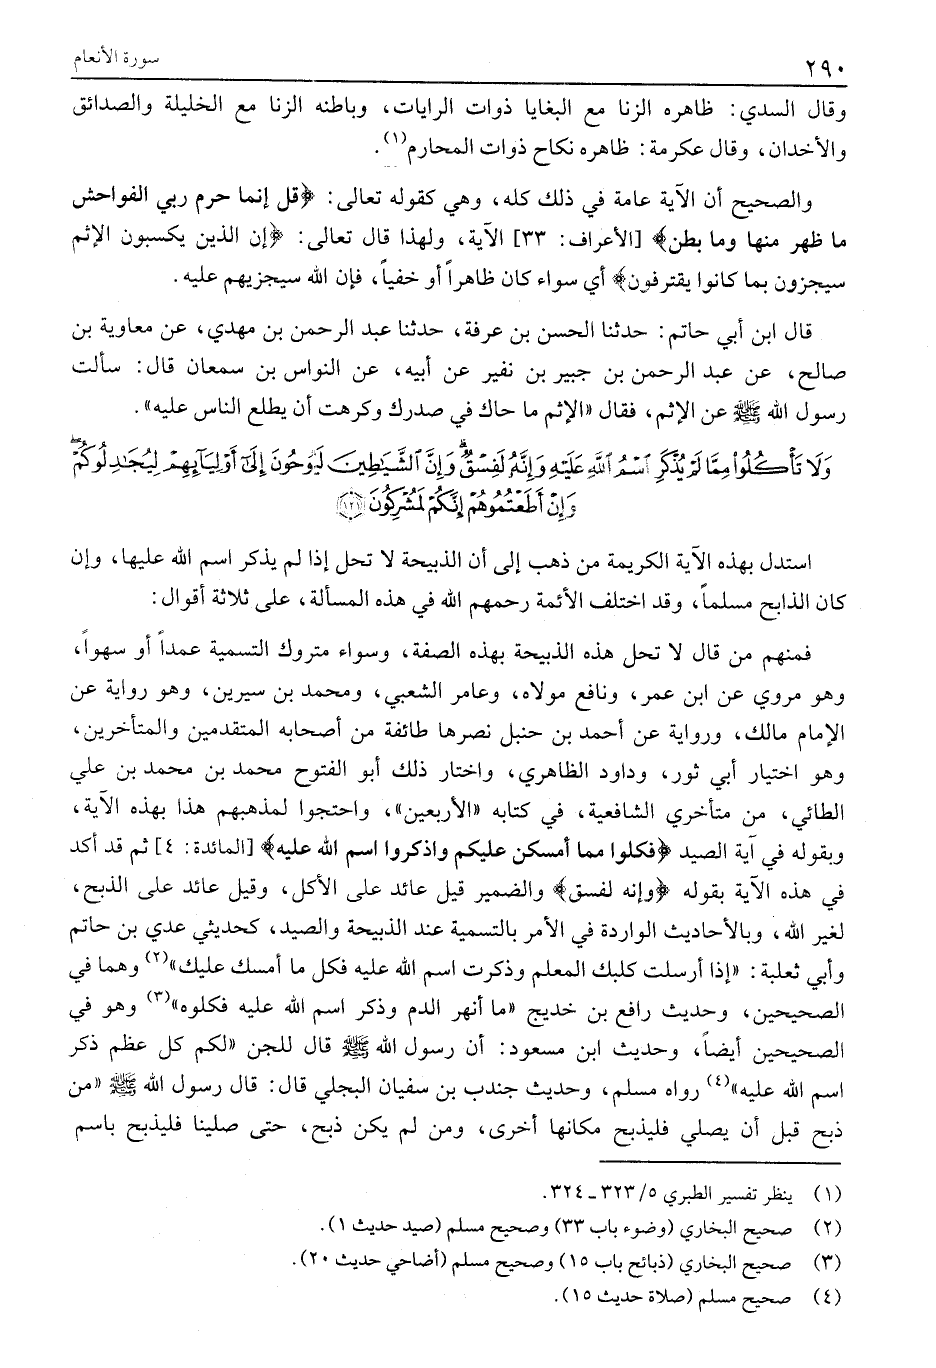 ٢٩٠ سورة الأنعام
وقال السدي: ظاهره الزنا مع البغايا ذوات الرايات، وباطنه الزنا مع الخليلة والصدائق
والأخدان، وقال عكرمة: ظاهره نكاح ذوات المحارم(١).
والصحيح أن الآية عامة في ذلك كله، وهي كقوله تعالى: ﴿قل إنما حرم ربي الفواحش
ما ظهر منها وما بطن﴾ [الأعراف: ٣٣] الآية، ولهذا قال تعالى: ﴿إن الذين يكسبون الإثم
سيجزون بما كانوا يقترفون﴾ أي سواء كان ظاهراً أو خفياً، فإن الله سيجزيهم عليه.
قال ابن أبي حاتم: حدثنا الحسن بن عرفة، حدثنا عبد الرحمن بن مهدي، عن معاوية بن
صالح، عن عبد الرحمن بن جبير بن نفير عن أبيه، عن النواس بن سمعان قال: سألت
رسول الله ﷺ عن الإثم، فقال «الإثم ما حاك في صدرك وكرهت أن يطلع الناس عليه».
وَلَا تَأْكُلُوا۟ مِمَّا لَمْ يُذْكَرِ ٱسْمُ ٱللَّهِ عَلَيْهِ وَإِنَّهُۥ لَفِسْقٌۗ وَإِنَّ ٱلشَّيَٰطِينَ لَيُوحُونَ إِلَىٰٓ أَوْلِيَآئِهِمْ لِيُجَٰدِلُوكُمْۖ
وَإِنْ أَطَعْتُمُوهُمْ إِنَّكُمْ لَمُشْرِكُونَ ﴿١٢١﴾
استدل بهذه الآية الكريمة من ذهب إلى أن الذبيحة لا تحل إذا لم يذكر اسم الله عليها، وإن
كان الذابح مسلماً، وقد اختلف الأئمة رحمهم الله في هذه المسألة، على ثلاثة أقوال:
فمنهم من قال لا تحل هذه الذبيحة بهذه الصفة، وسواء متروك التسمية عمداً أو سهواً،
وهو مروي عن ابن عمر، ونافع مولاه، وعامر الشعبي، ومحمد بن سيرين، وهو رواية عن
الإمام مالك، ورواية عن أحمد بن حنبل نصرها طائفة من أصحابه المتقدمين والمتأخرين،
وهو اختيار أبي ثور، وداود الظاهري، واختار ذلك أبو الفتوح محمد بن محمد بن علي
الطائي، من متأخري الشافعية، في كتابه «الأربعين»، واحتجوا لمذهبهم هذا بهذه الآية،
وبقوله في آية الصيد ﴿فكلوا مما أمسكن عليكم واذكروا اسم الله عليه﴾ [المائدة: ٤] ثم قد أكد
في هذه الآية بقوله ﴿وإنه لفسق﴾ والضمير قيل عائد على الأكل، وقيل عائد على الذبح،
لغير الله، وبالأحاديث الواردة في الأمر بالتسمية عند الذبيحة والصيد، كحديثي عدي بن حاتم
وأبي ثعلبة: «إذا أرسلت كلبك المعلم وذكرت اسم الله عليه فكل ما أمسك عليك»(٢) وهما في
الصحيحين، وحديث رافع بن خديج «ما أنهر الدم وذكر اسم الله عليه فكلوه»(٣) وهو في
الصحيحين أيضاً، وحديث ابن مسعود: أن رسول الله ﷺ قال للجن «لكم كل عظم ذكر
اسم الله عليه»(٤) رواه مسلم، وحديث جندب بن سفيان البجلي قال: قال رسول الله ﷺ «من
ذبح قبل أن يصلي فليذبح مكانها أخرى، ومن لم يكن ذبح، حتى صلينا فليذبح باسم
(١) ينظر تفسير الطبري ٥/ ٣٢٣ ـ ٣٢٤.
(٢) صحيح البخاري (وضوء باب ٣٣) وصحيح مسلم (صيد حديث ١).
(٣) صحيح البخاري (ذبائح باب ١٥) وصحيح مسلم (أضاحي حديث ٢٠).
(٤) صحيح مسلم (صلاة حديث ١٥).